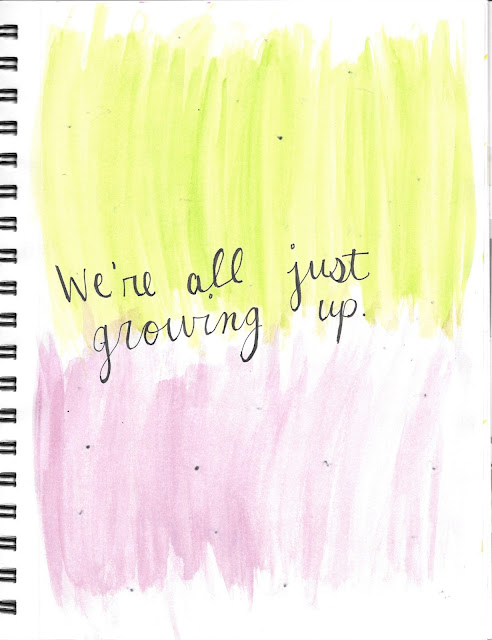 We're all just
growing up.